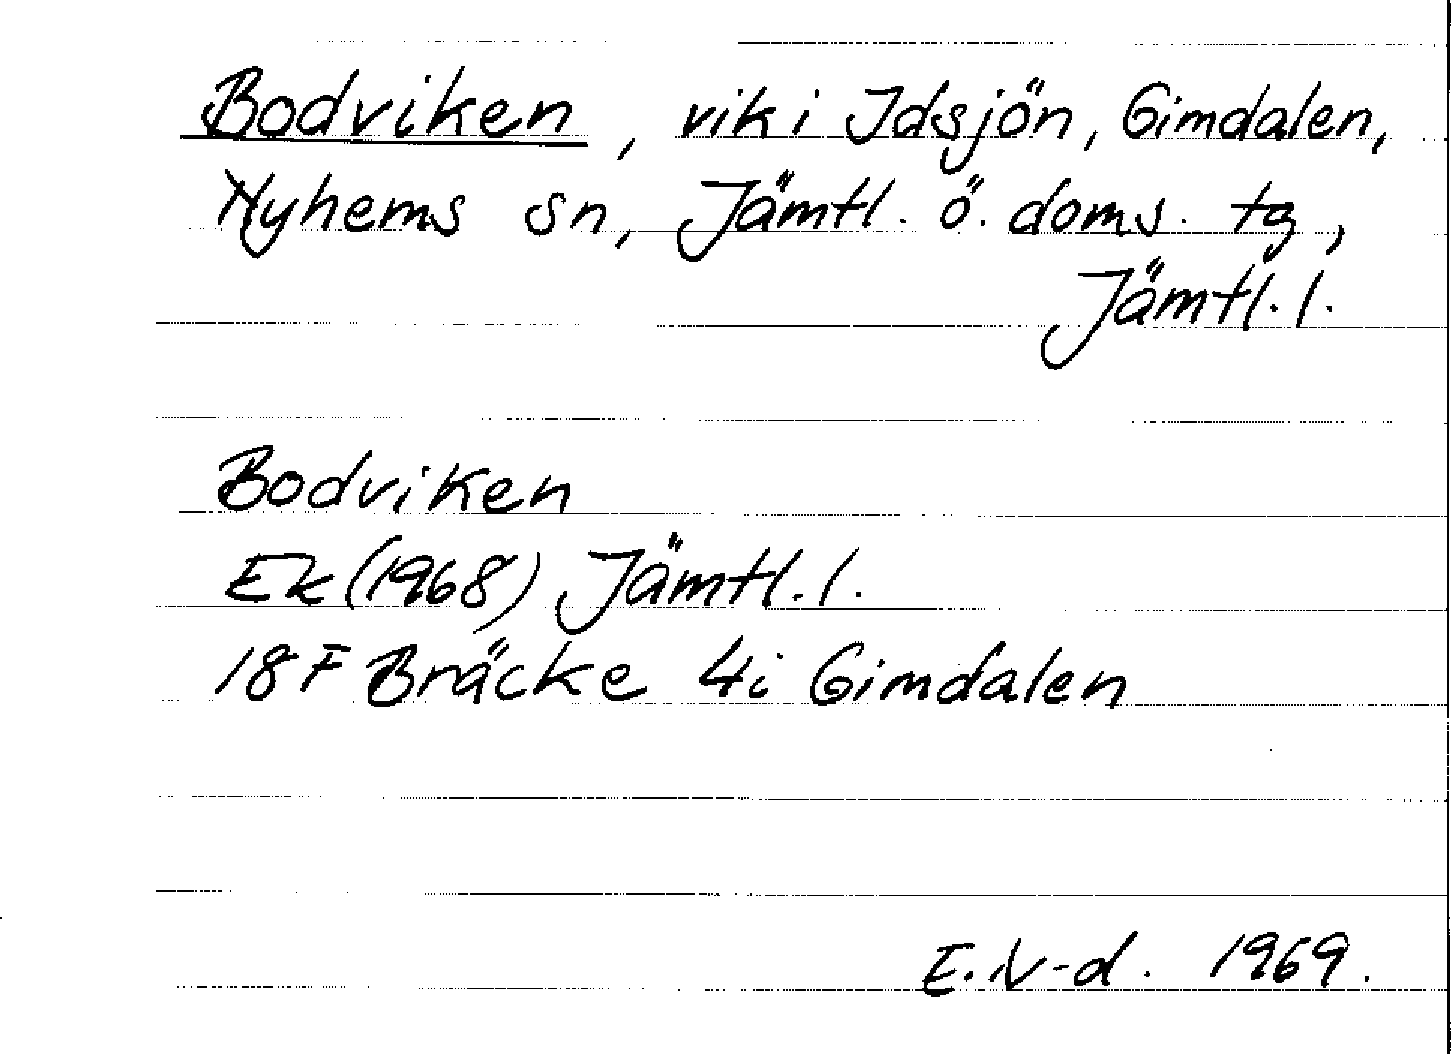 Bodviken, vik i Idsjön, Gimdalen,
Nyhems sn, Jämtl. ö. doms. tg,
Jämtl. l.
Bodviken
Ek (1968) Jämtl. l.
18F Bräcke 4i Gimdalen
E. N-d. 1969.